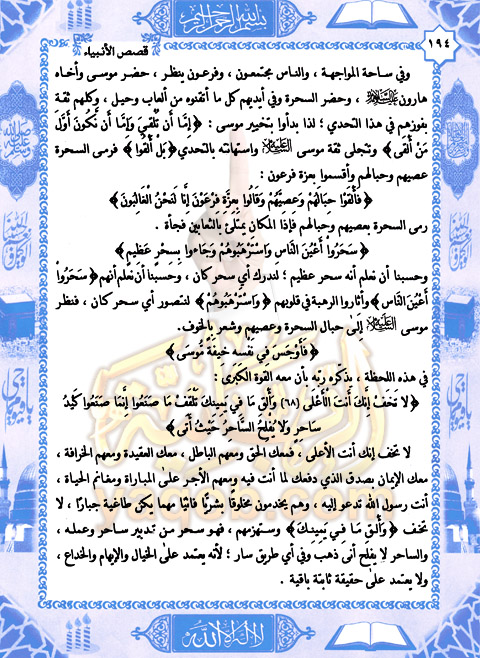 بسم الله الرحمن الرحيم
١٩٤
قصص الأنبياء
وفي ساحة المواجهة ، والناس مجتمعون ، وفرعون ينظر ، حضر موسى وأخاه
هارون عليهما السلام ، وحضر السحرة وفي أيديهم كل ما أتقنوه من ألعاب وحيل ، وكلهم ثقة
بفوزهم في هذا التحدي ؛ لذا بدأوا بتخيير موسى : ﴿ إِمَّا أَن تُلْقِيَ وَإِمَّا أَن نَّكُونَ أَوَّلَ
مَنْ أَلْقَى ﴾ وتتجلى ثقة موسى عليه السلام واستهانته بالتحدي ﴿ بَلْ أَلْقُوا ﴾ فرمى السحرة
عصيهم وحبالهم وأقسموا بعزة فرعون :
﴿ فَأَلْقَوْا حِبَالَهُمْ وَعِصِيَّهُمْ وَقَالُوا بِعِزَّةِ فِرْعَوْنَ إِنَّا لَنَحْنُ الْغَالِبُونَ ﴾
رمى السحرة بعصيهم وحبالهم فإذا المكان يمتلئ بالثعابين فجأة .
﴿ سَحَرُوا أَعْيُنَ النَّاسِ وَاسْتَرْهَبُوهُمْ وَجَاءُوا بِسِحْرٍ عَظِيمٍ ﴾
وحسبنا أن نعلم أنه سحر عظيم ؛ لندرك أي سحر كان ، وحسبنا أن نعلم أنهم ﴿ سَحَرُوا
أَعْيُنَ النَّاسِ ﴾ وأثاروا الرهبة في قلوبهم ﴿ وَاسْتَرْهَبُوهُمْ ﴾ لنتصور أي سحر كان ، فنظر
موسى عليه السلام إلى حبال السحرة وعصيهم وشعر بالخوف .
﴿ فَأَوْجَسَ فِي نَفْسِهِ خِيفَةً مُّوسَى ﴾
في هذه اللحظة ، يذكره ربّه بأن معه القوة الكبرى :
﴿ لَا تَخَفْ إِنَّكَ أَنتَ الْأَعْلَى (٦٨) وَأَلْقِ مَا فِي يَمِينِكَ تَلْقَفْ مَا صَنَعُوا إِنَّمَا صَنَعُوا كَيْدُ
سَاحِرٍ وَلَا يُفْلِحُ السَّاحِرُ حَيْثُ أَتَى ﴾
لا تخف إنك أنت الأعلى ، فمعك الحق ومعهم الباطل ، معك العقيدة ومعهم الحرافة ،
معك الإيمان بصدق الذي دفعك لما أنت فيه ومعهم الأجر على المباراة ومغانم الحياة ،
أنت رسول الله تدعو إليه ، وهم يخدمون مخلوقًا بشريًّا فانيًا مهما يكن طاغية جبارًا ، لا
تخف ﴿ وَأَلْقِ مَا فِي يَمِينِكَ ﴾ وستهزمهم ، فهو سحر من تدبير ساحر وعمله ،
والساحر لا يفلح أنى ذهب وفي أي طريق سار ؛ لأنه يعتمد على الخيال والإيهام والخداع ،
ولا يعتمد على حقيقة ثابتة باقية .
لا إله إلا الله